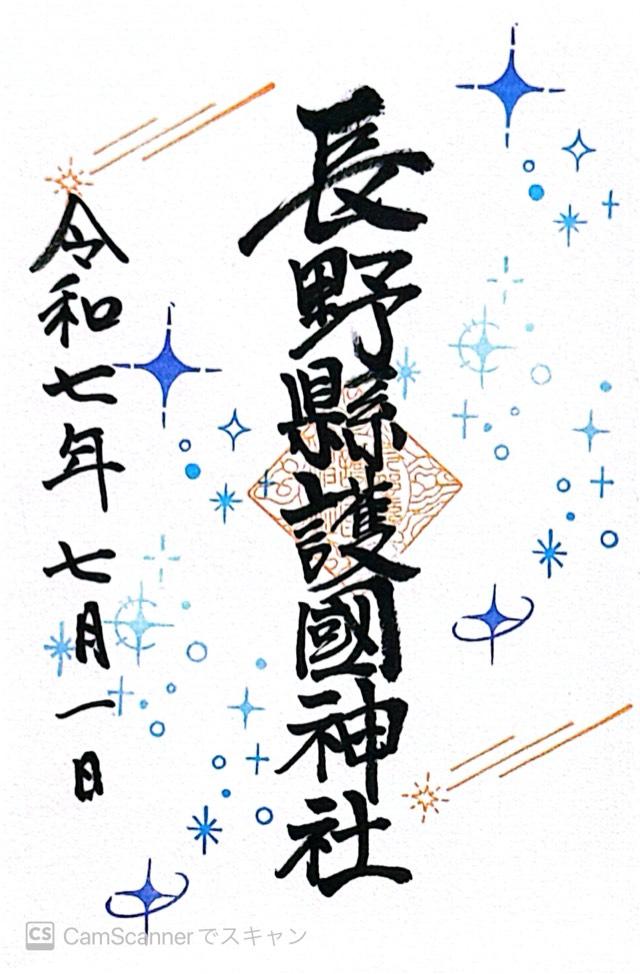 長野縣護國神社
令和七年七月一日
CS CamScannerでスキャン